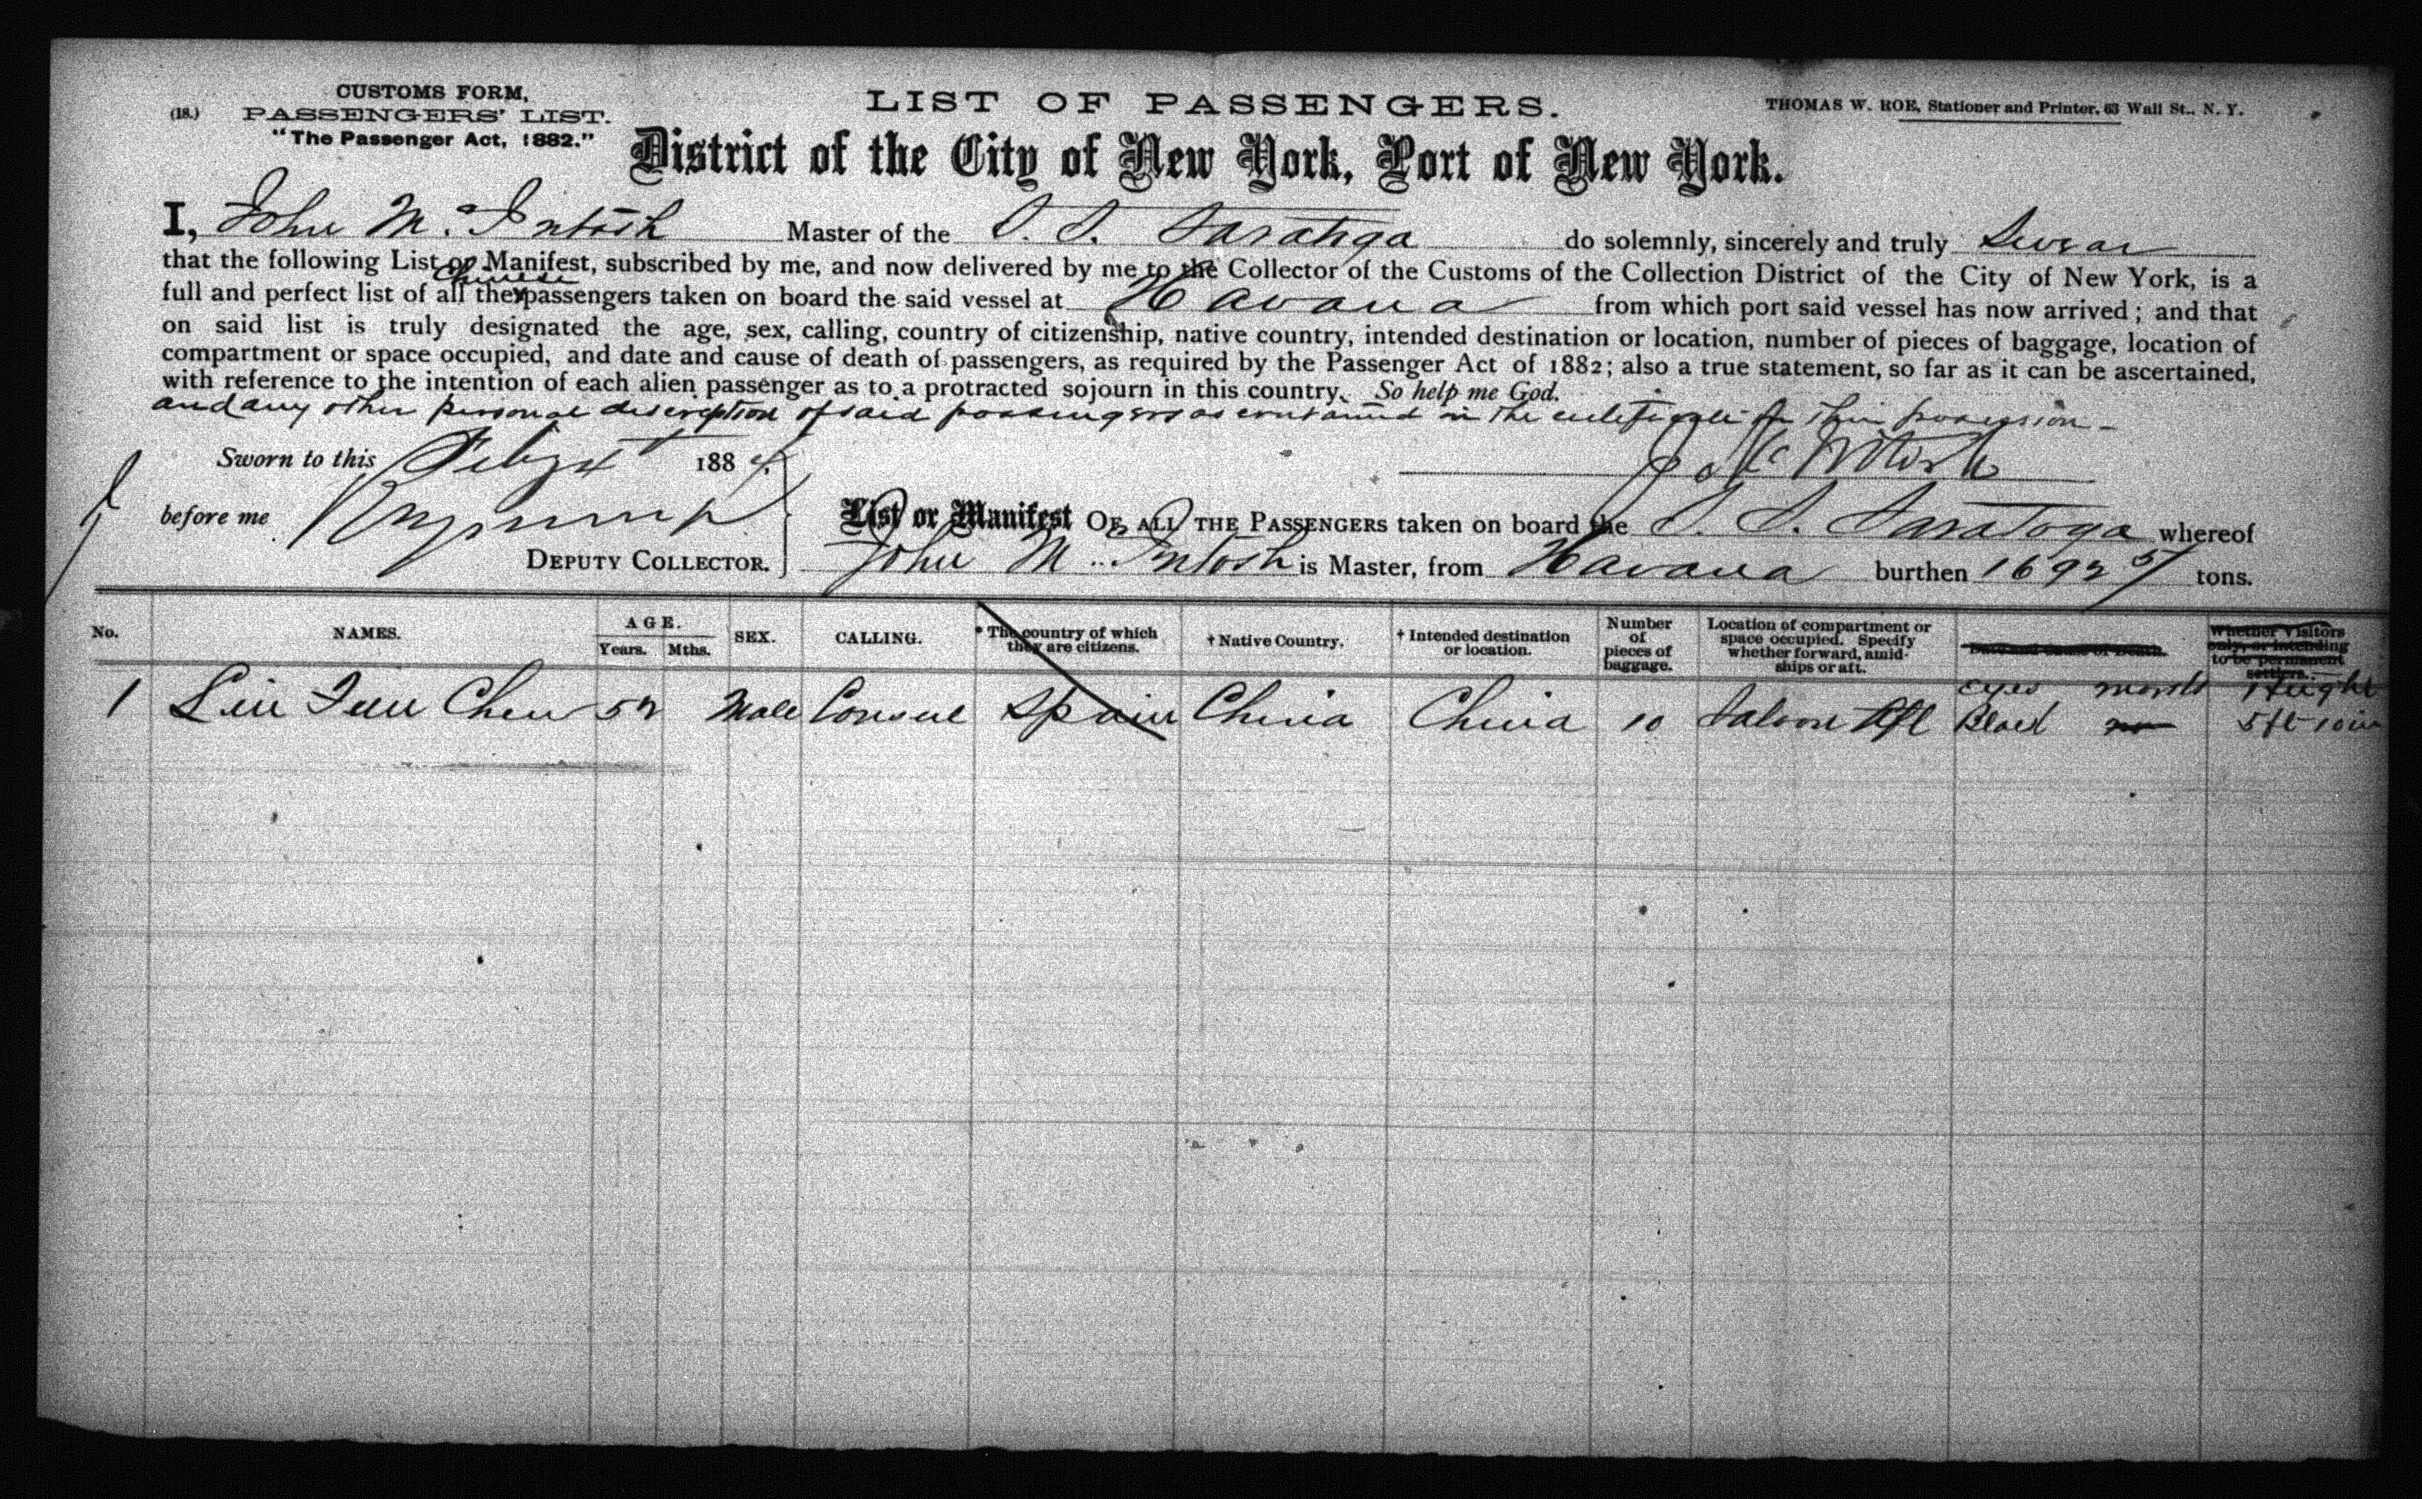 CUSTOMS FORM,
(18.) PASSENGERS' LIST.
"The Passenger Act, 1882."
LIST OF PASSENGERS.
THOMAS W. ROE, Stationer and Printer, 63 Wall St., N. Y.
District of the City of New York, Port of New York.
I, John M. Intosh Master of the S. S. Saratoga do solemnly, sincerely and truly Swear
that the following List or Manifest, subscribed by me, and now delivered by me to the Collector of the Customs of the Collection District of the City of New York, is a
Chinese
full and perfect list of all the passengers taken on board the said vessel at Havana from which port said vessel has now arrived; and that
on said list is truly designated the age, sex, calling, country of citizenship, native country, intended destination or location, number of pieces of baggage, location of
compartment or space occupied, and date and cause of death of passengers, as required by the Passenger Act of 1882; also a true statement, so far as it can be ascertained,
with reference to the intention of each alien passenger as to a protracted sojourn in this country. So help me God.
and any other personal description of said passengers as contained in the certificate in their possession -
Sworn to this Feby 188 4.
before me
DEPUTY COLLECTOR.
J McIntosh
List or Manifest OF ALL THE PASSENGERS taken on board the S. S. Saratoga whereof
John M. Intosh is Master, from Havana burthen 1692 tons.
No. NAMES. AGE. Years. Mths. SEX. CALLING. * The country of which they are citizens. † Native Country. † Intended destination or location. Number of pieces of baggage. Location of compartment or space occupied. Specify whether forward, amidships or aft. Date and Cause of Death. Whether Visitors only, or intending to be permanent settlers.
eyes marks Height
1 Liu Fuu Chen 52 Male Consul Spain China China 10 Saloon Aft Black no 5 ft 10 in